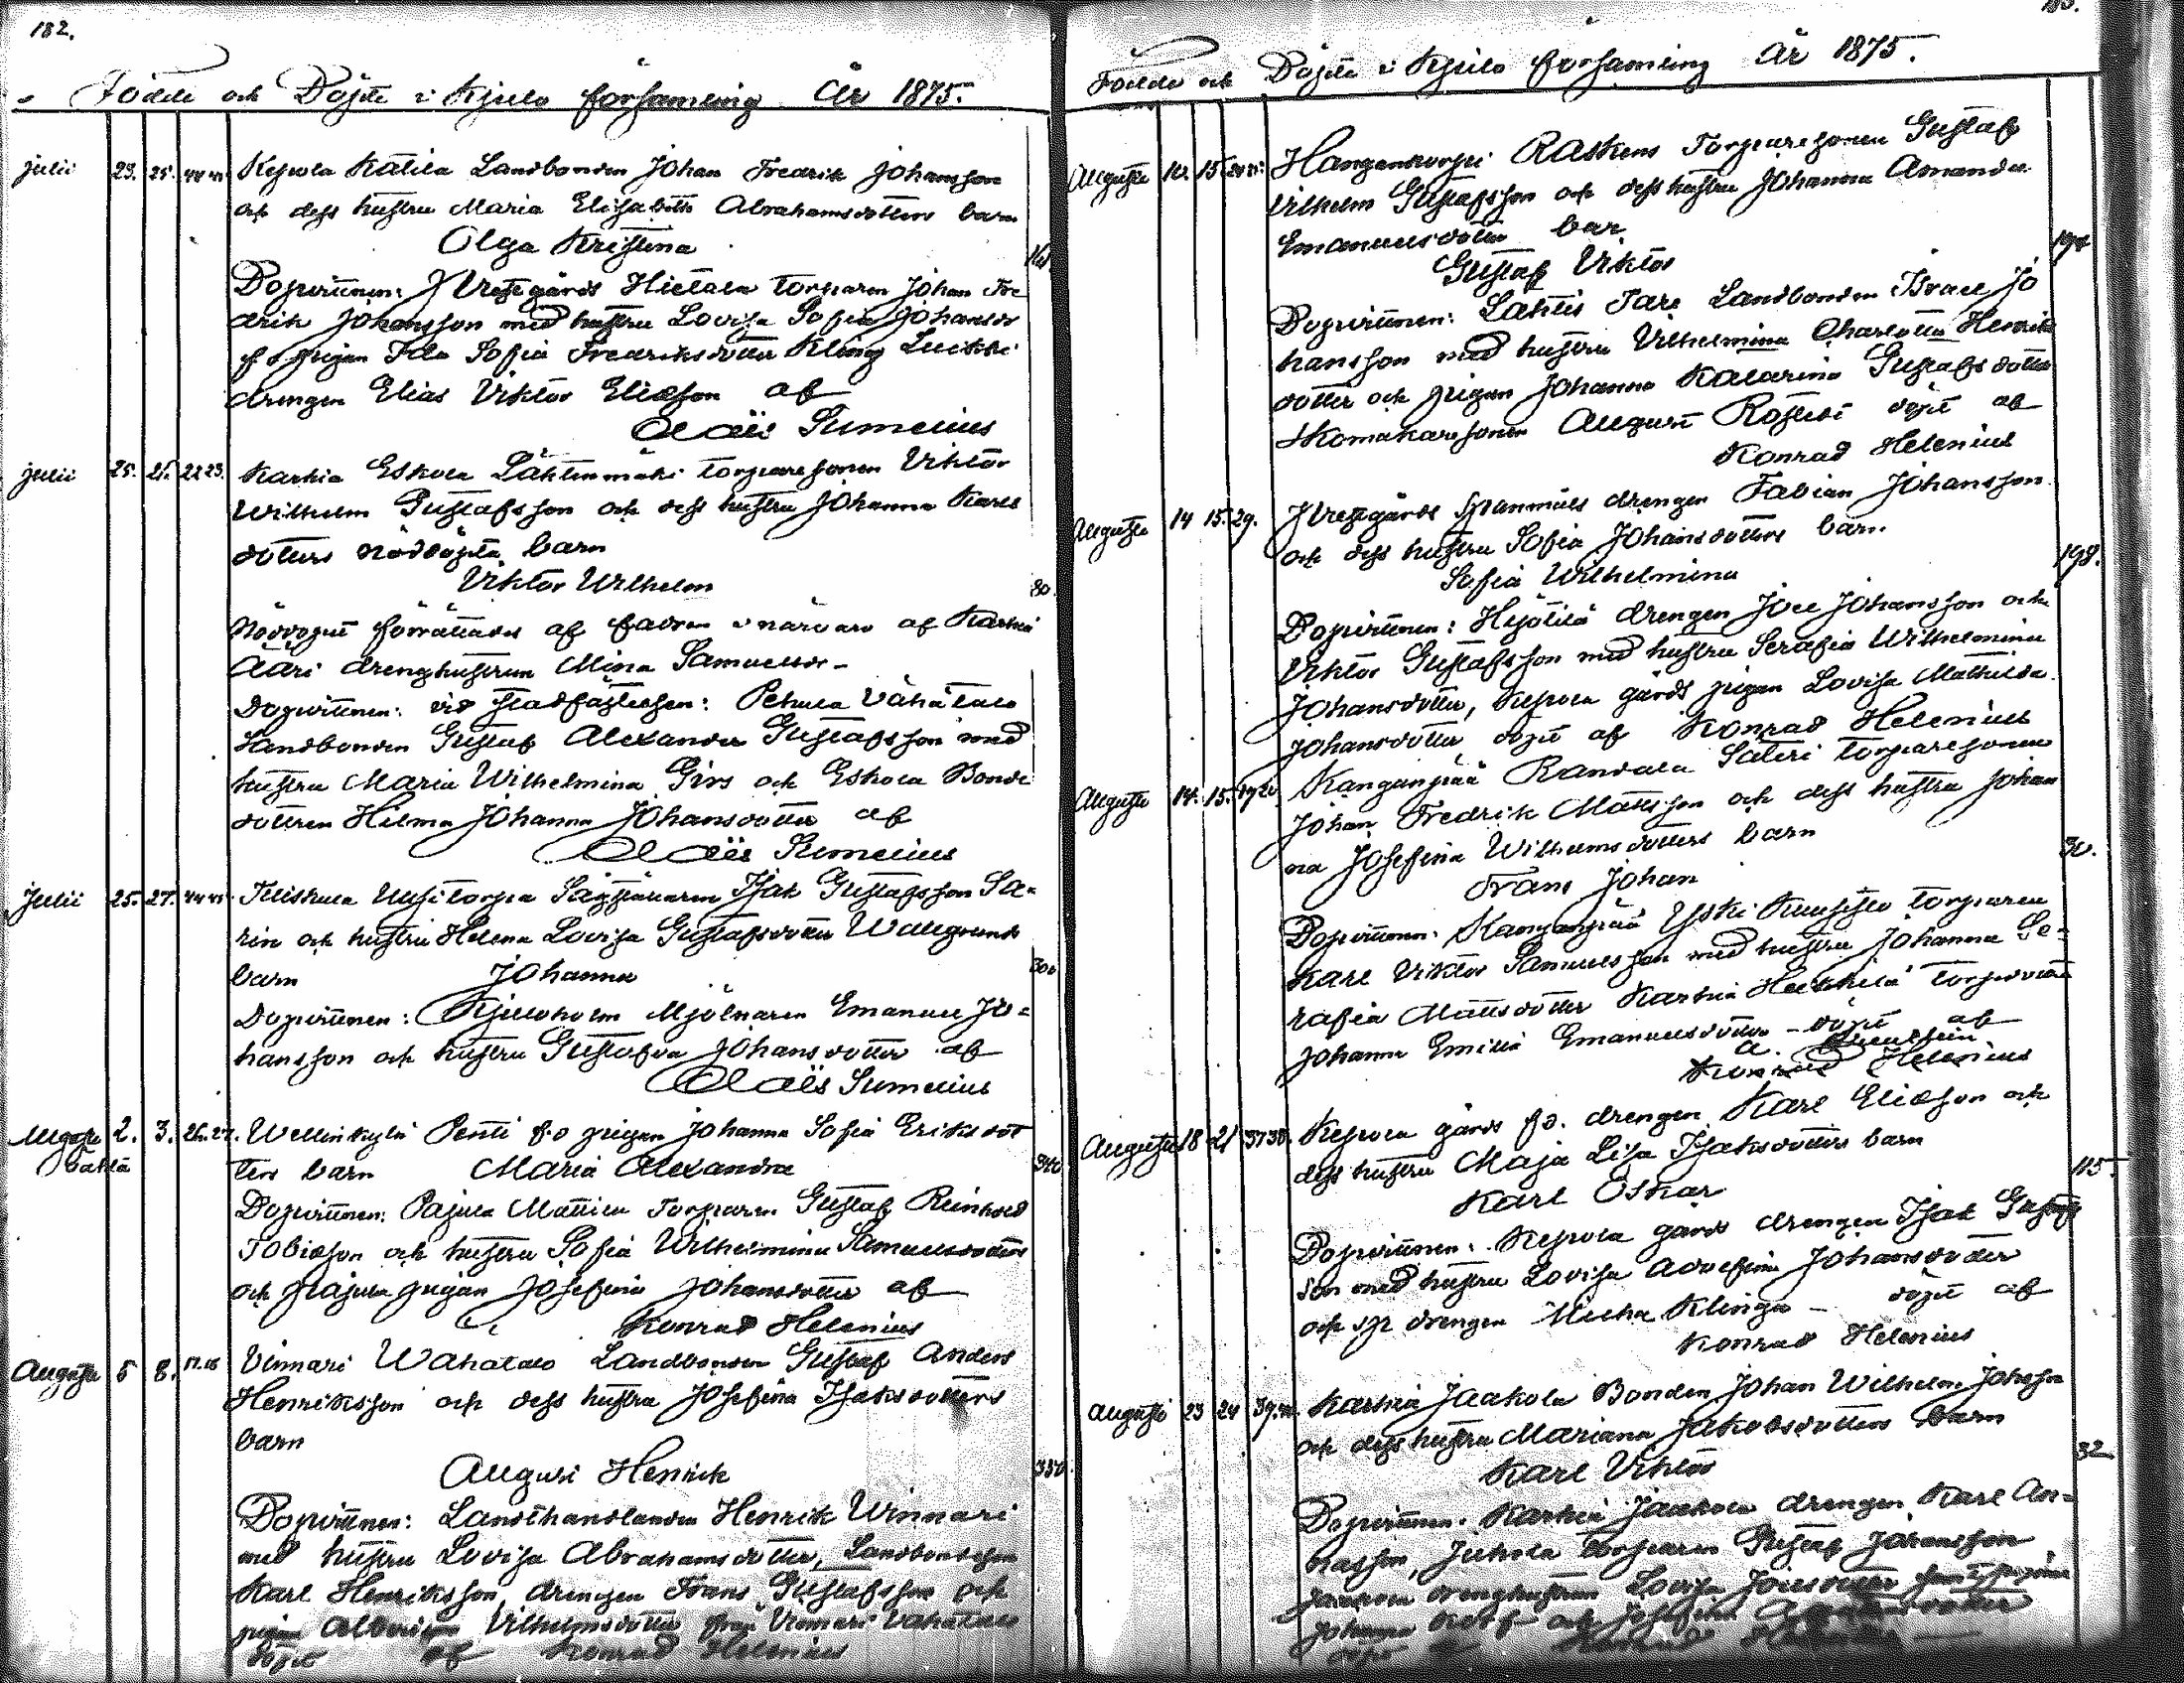 182.
Födde och Döpte i Kjulo församling År 1875.
Julii 23. 25. 44 45 Kepola Katila Landbonden Johan Fredrik Johansson
och dess hustru Maria Elisabeth Abrahamsdotters barn
Olga Kristina
Dopvittnen: Ylistgårds Hietala torparen Johan Fre
drik Johansson med hustru Lovisa Sofia Johansdr
f d pigan Ida Sofia Fredriksdotter Kling
drengen Elias Viktor Eliasson af
Claës Sumelius
Julii 25. 26. 22 23. Karhia Eskola Lähtenmäki torparesonen Viktor
Wilhelm Gustafsson och dess hustru Johanna Karls
dotters nöddöpta barn
Viktor Wilhelm
80.
Nöddopet förrättades af fadren i närvaro af Karhia
Ääri drenghustrun Mina Samuelsdr
Dopvittnen: vid stadfästelsen: Pehula Vähätalo
Landbonden Gustaf Alexander Gustafsson med
hustru Maria Wilhelmina Girs och Eskola Bonde
dottren Hilma Johanna Johansdotter af
Claës Sumelius
Julii 25. 27. 44 45 Uusitorpa Isak Gustafsson Sa-
rin och hustru Helena Lovisa Gustafsdotter Wallgrunds
barn Johanna
300
Dopvittnen: Kjuloholm Mjölnaren Emanuel Jo-
hansson och hustru Gustafva Johansdotter af
Claës Sumelius
Augusti 2. 3. 26. 27. Wellinkylä Pentti f.d pigan Johanna Sofia Eriksdot
ters barn Maria Alexandra
340
Dopvittnen: Pajula Mattila Torparen Gustaf Reinhold
Tobiasson och hustru Sofia Wilhelmina Samuelsdotter
och Pajula pigan Josefina Johansdotter af
Konrad Helenius
Augusti 5 8. 17.18 Vinnari Wahatalo Landbonden Gustaf Anders
Henriksson och dess hustru Josefina Isaksdotters
barn
August Henrik
350
Dopvittnen: Landthandlanden Henrik Winnari
med hustru Lovisa Abrahamsdotter, Landbondeson
Karl Henriksson, drengen Frans Gustafsson och
pigan Vilhelmsdotter från Vinnari Vahatalo
döpt af Konrad Helenius
Födde och Döpte i Kjulo församling År 1875.
Augusti 15. Raskens Torparesonen Gustaf
Vilhelm Gustafsson och dess hustru Johanna Amanda
Emanuelsdotter bar
Gustaf Viktor
194
Dopvittnen: Lahtis Tare Landbonden Israel Jo
hansson med hustru Vilhelmina Charlotta Henriks
dotter och pigan Johanna Katarina Gustafsdotter
Skomakaresonen August döpt af
Konrad Helenius
Augusti 14 15. 29. Ylistgårds Spanmåls drengen Fabian Johansson
och dess hustru Sofia Johansdotters barn
Sofia Wilhelmina
198.
Dopvittnen: Hejölilä drengen Joel Johansson och
Viktor Gustafsson med hustru Serafia Wilhelmina
Johansdotter, Kepola gårds pigan Lovisa Mathilda
Johansdotter döpt af Konrad Helenius
Augusti 14. 15. 19 20 Kanganpää Randala Säteri torparesonen
Johan Fredrik Mattsson och dess hustru Johan
na Josefina Wilhelmsdotters barn
Frans Johan
30.
Dopvittnen: Kanganpää Yski torparen
Karl Viktor Samuelsson med hustru Johanna Se-
rafia Mattsdotter Karhia Heikkilä
Johanna Emilia Emanuelsdotter döpt af
Konrad Helenius
Augusti 18 21 37 38. Kepola gårds fd. drengen Karl Eliasson och
dess hustru Maja Lisa Isaksdotters barn
Karl Oskar
115
Dopvittnen: Kepola gårds drengen Isak Gustafs
son med hustru Lovisa Johansdotter
och drengen Micha Klinga döpt af
Konrad Helenius
Augusti 23 24 39.40. Karhia Jaakola Bonden Johan Wilhelm Johsson
och dess hustru Mariana Jakobsdotters barn
Karl Viktor
32
Dopvittnen: Karhia Jaakola drengen Karl An-
Juhola torparen Gustaf Johansson
Jaakola drenghustrun Lovisa
Johanna och Josefina